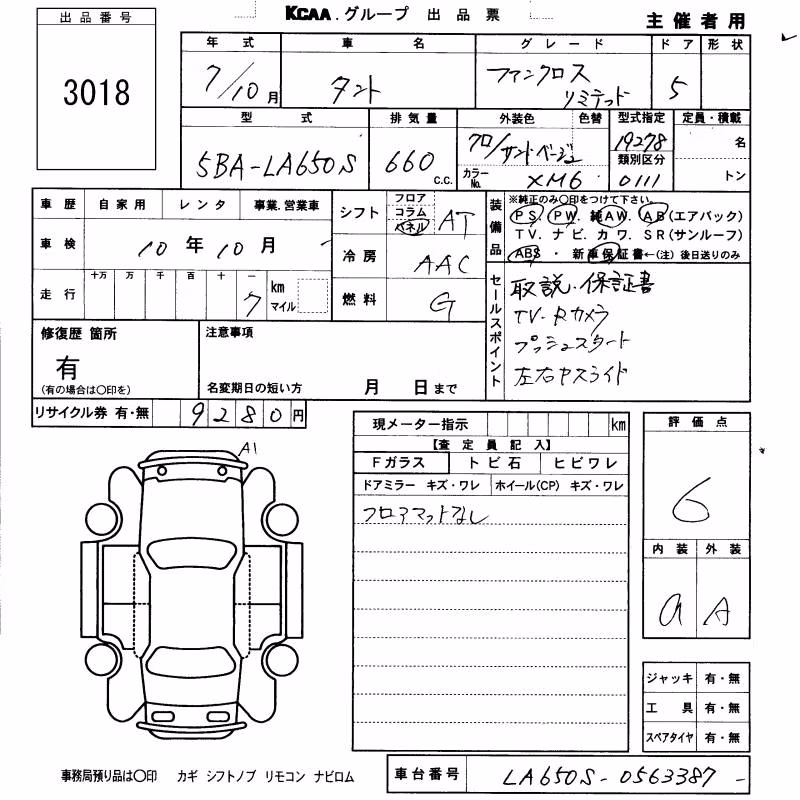 出品番号
3018
KCAA.グループ 出品票
主催者用
年式 車名 グレード ドア 形状
7/10月 タント ファンクロス リミテッド 5
型式 排気量 外装色 色替 型式指定 定員・積載
5BA-LA650S 660 c.c. クロ/サンドベージュ 19278 名
カラーNo. XM6 類別区分 0111 トン
車歴 自家用 レンタ 事業.営業車
車検 10年10月
走行 十万 万 千 百 十 一 7 km マイル
シフト フロア コラム パネル AT
冷房 AAC
燃料 G
装備品 ※純正のみ〇印をつけて下さい。
PS PW 純AW AB(エアバック)
TV. ナビ. カワ. SR(サンルーフ)
ABS ・ 新車保証書←(注)後日送りのみ
セールスポイント
取説.保証書
TV.Rカメラ
プッシュスタート
左右ヤスライド
修復歴 箇所
有
(有の場合は〇印を)
注意事項
名変期日の短い方 月 日まで
リサイクル券 有・無 9280円
A1
現メーター指示 km
【査定員記入】
Fガラス トビ石 ヒビワレ
ドアミラー キズ・ワレ ホイール(CP) キズ・ワレ
フロアマットなし
評価点
6
内装 外装
a A
ジャッキ 有・無
工具 有・無
スペアタイヤ 有・無
事務局預り品は〇印 カギ シフトノブ リモコン ナビロム
車台番号 LA650S-0563387-